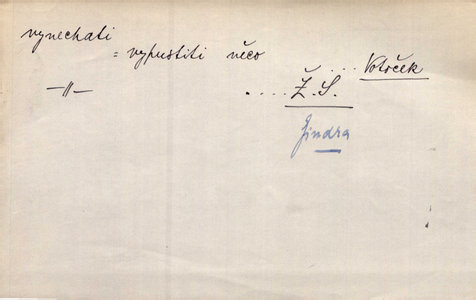 vynechati
= vypustiti něco
.... Votoček
—॥— .... Ž. S.
Jindra